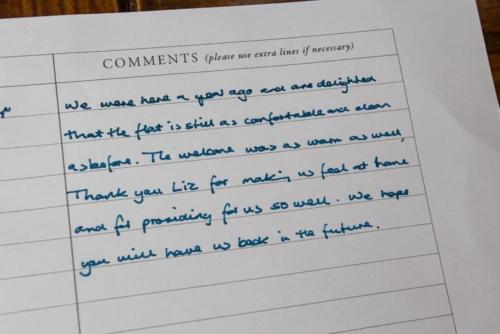 COMMENTS (please use extra lines if necessary)
We were here a year ago and are delighted
that the flat is still as comfortable and clean
as before. The welcome was as warm as well,
Thank you Liz for making us feel at home
and for providing for us so well. We hope
you will have us back in the future.